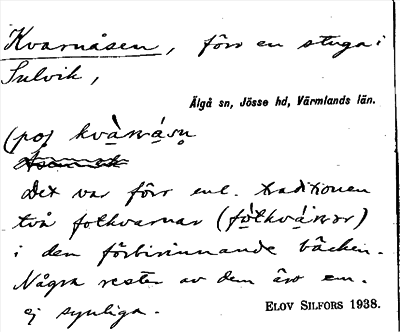 Kvarnåsen, förr en stuga i
Sulvik,
Älgå sn, Jösse hd, Värmlands län.
(på)
Det var förr enl. traditionen
två fotkvarnar
i den förbirinnande bäcken.
Några rester av dem äro em.
ej synliga.
ELOV SILFORS 1938.